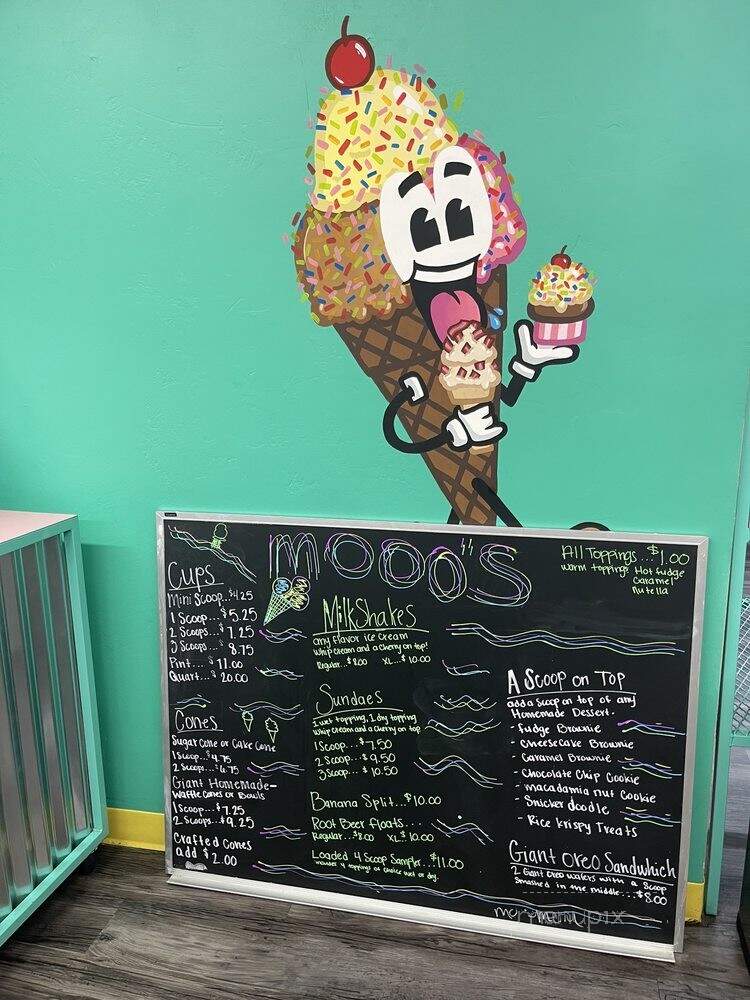 MOOO'S
All Toppings...$1.00
warm toppings Hot fudge
Caramel
Nutella
Cups
Mini Scoop..$4.25
1 Scoop...$5.25
2 Scoops...$7.25
3 Scoops..$8.75
Pint...$11.00
Quart...$20.00
Cones
Sugar Cone or Cake Cone
1 Scoop..$4.75
2 Scoops..$6.75
Giant Homemade-
Waffle Cones or Bowls
1 Scoop...$7.25
2 Scoops..$9.25
Crafted Cones
add $2.00
MilkShakes
any flavor ice cream
whip cream and a cherry on top!
Regular..$8.00 XL...$10.00
Sundaes
1 wet topping, 1 dry topping
whip cream and a cherry on top
1 Scoop...$7.50
2 Scoop..$9.50
3 Scoop...$10.50
Banana Split...$10.00
Root Beer floats....
Regular..$8.00 XL.$10.00
Loaded 4 Scoop Sampler...$11.00
4 toppings of choice wet or dry.
A Scoop on Top
add a scoop on top of any
Homemade Dessert.
- fudge Brownie
- cheesecake Brownie
- Caramel Brownie
- Chocolate Chip Cookie
- macadamia nut Cookie
- Snicker doodle
- Rice krispy Treats
Giant Oreo Sandwhich
2 Giant Oreo wafers with a scoop
Smashed in the middle...$8.00